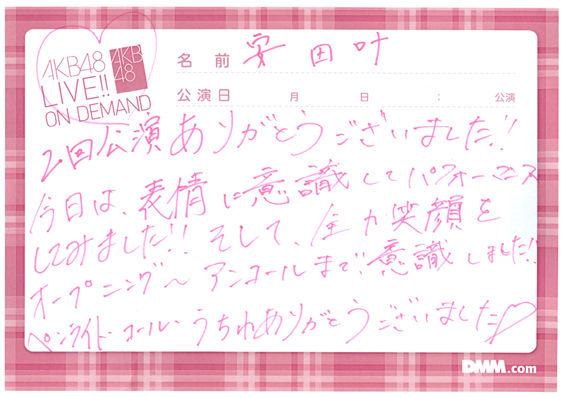 AKB48
LIVE!!
ON DEMAND
AKB
48
名前 安田叶
公演日 月 日 : 公演
2回公演ありがとうございました!!
今日は、表情に意識してパフォーマンス
してみました!! そして、全力笑顔を
オープニング〜アンコールまで意識しました!!
ペンライト・コール・うちわありがとうございました♡
DMM.com